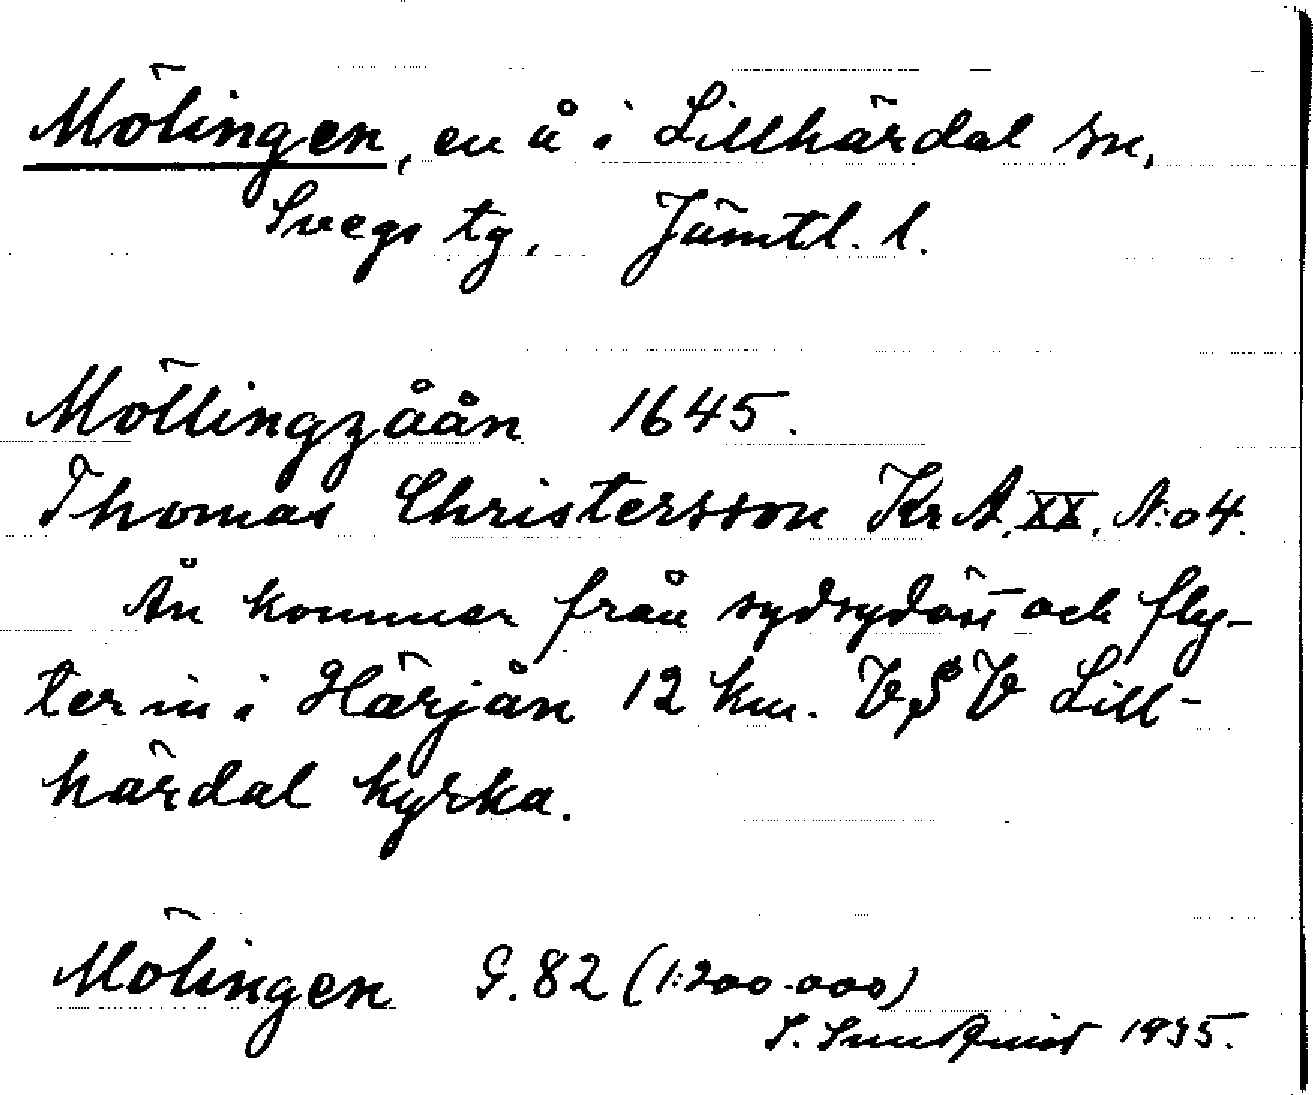 Mölingen, en å i Lillhärdal sn,
Svegs tg, Jämtl. l.
Möllingzåån 1645.
Thomas Christersson KrA. XX. N:o 4.
Ån kommer från sydsydöst och fly-
ter in i Härjån 12 km. VSV Lill-
härdal kyrka.
Mölingen G. 82 (1:200.000)
S. Sundqvist 1935.